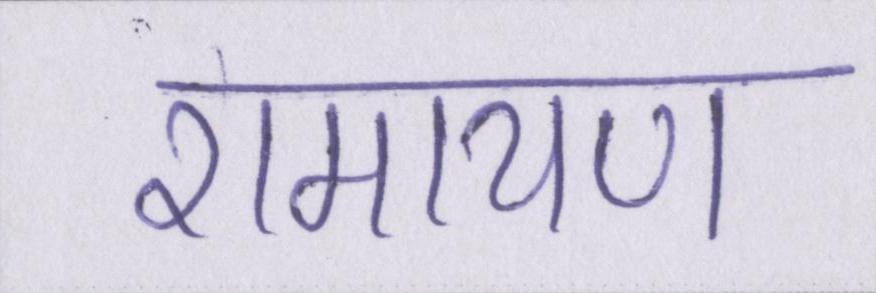 रामायण